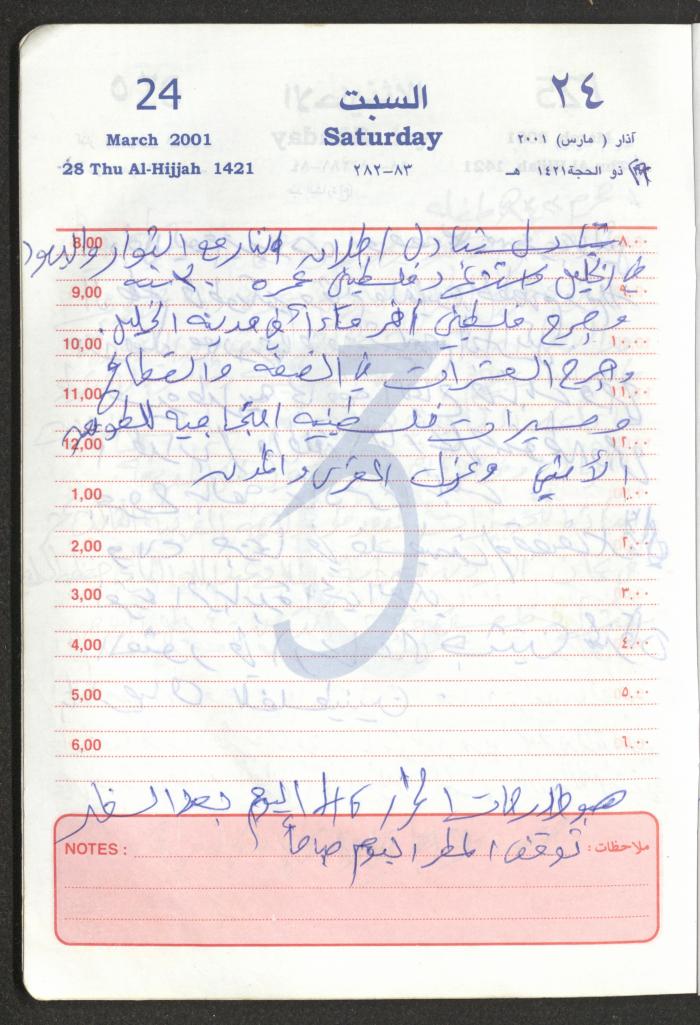 24 السبت ٢٤
March 2001 Saturday آذار ( مارس) ٢٠٠١
28 Thu Al-Hijjah 1421 ٢٨٢-٨٣ ذو الحجة ١٤٢١ هـ
8,00 تبادل اطلاق النار مع الثوار واليهود ٨,٠٠
9,00 في الخليل فلسطيني عمره سنة ٩,٠٠
وجرح فلسطيني آخر مساءاً في مدينة الخليل.
10,00 ١٠,٠٠
وجرح العشرات في الضفة والقطاع
11,00 ١١,٠٠
ومسيرات فلسطينيه احتجاجية للطوق
12,00 ١٢,٠٠
الأمني وعزل القرى والمدن
1,00 ١,٠٠
2,00 ٢,٠٠
3,00 ٣,٠٠
4,00 ٤,٠٠
5,00 ٥,٠٠
6,00 ٦,٠٠
هبوط درجات الحراره اليوم بعد الظهر
NOTES : توقف المطر اليوم صباحاً ملاحظات :
3